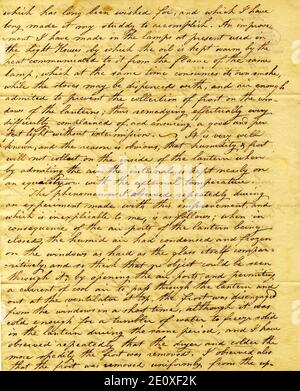 which has long been wished for, and which I have
long made it my study to accomplish. An improve
ment I have made in the lamps at present used in
the Light Houses by which the oil is kept warm by the
heat communicated to it from the flame of the same
lamp, which at the same time consumes its own smoke,
while the stoves may be dispensed with, and air enough
admitted to prevent the collection of frost on the win
dows of the lantern; thus remedying effectually every
difficulty complained of and ensuring a good and per
fect light without intermission. It is very well
known, and the reason is obvious, that humidity & frost
will not collect on the inside of the lantern when
by admitting the air the internal is kept nearly on
an equality with the external temperature.
The phenomenon I observed repeatedly during
an experiment made with this improvement, and
which is inexplicable to me, is as follows; when in
consequence of the air ports of the lantern being
closed, the humid air had condensed and frozen
on the windows as hard as the glass itself
and so thick that no object could be seen
through it, by opening the air ports, and permitting
a current of cool air to pass through the lantern and
out at the ventilator at top, the frost was disengaged
from the windows in a short time, although it was
cold enough for a tumbler of water to freeze solid
in the lantern during the same period, and I have
observed repeatedly that the dryer and colder the
more speedily the frost was removed. I observed also
that the frost was removed uniformly, from the up
alamy
Image ID: 2E0XF2K
www.alamy.com